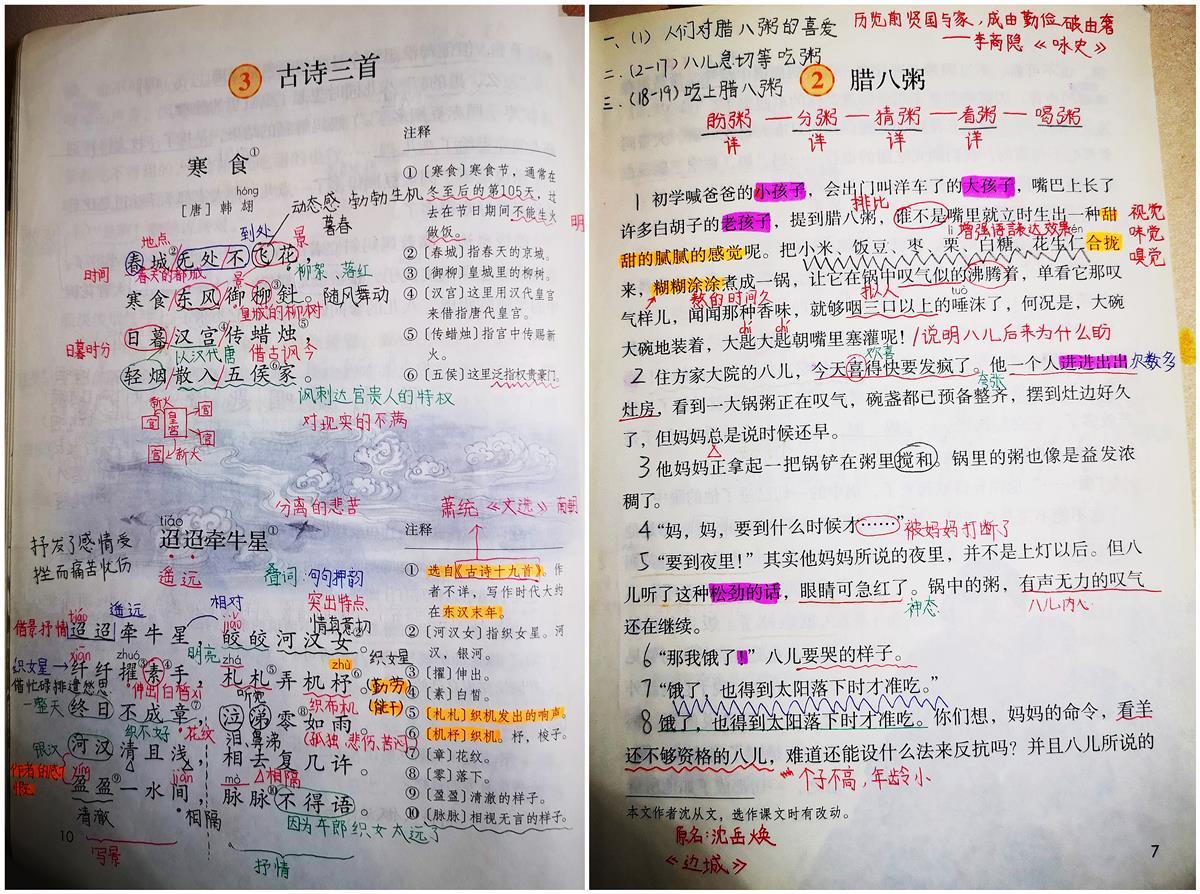 3 古诗三首
寒食①
[唐] 韩翃
hóng
动态感 勃勃生机
暮春
地点
到处
景
春城②无处不飞花,
时间
春天的都城
景
柳絮、落红
寒食东风御柳③斜。
随风舞动
皇城的柳树
日暮时分
日暮汉宫④传蜡烛⑤,
以汉代唐
借古讽今
轻烟散入五侯⑥家。
讽刺达官贵人的特权
对现实的不满
新火
宫
皇宫
宫
宫
宫
新火
注释
①〔寒食〕寒食节,通常在
冬至后的第105天,过
去在节日期间不能生火
做饭。
明
②〔春城〕指春天的京城。
③〔御柳〕皇城里的柳树。
④〔汉宫〕这里用汉代皇宫
来借指唐代皇宫。
⑤〔传蜡烛〕指宫中传赐新
火。
⑥〔五侯〕这里泛指权贵豪门。
分离的悲苦
萧统《文选》南朝
tiáo
迢迢牵牛星①
遥远
抒发了感情受
挫而痛苦忧伤
叠词:句句押韵
突出特点
情真意切
遥远
相对
借景抒情
tiáo
jiǎo
迢迢牵牛星,皎皎河汉女②。
明亮
织女星
织女星→
借忙碌排遣愁思
xiān
zhuó
zhá
zhù
纤纤擢③素④手,札札⑤弄机杼⑥。
伸出
白皙 xī
听觉
织布机
勤劳
(能干)
一整天
终日不成章⑦,泣涕零⑧如雨。
织不好
花纹
泪、鼻涕
(孤独、悲伤、苦闷)
银汉
河汉清且浅,相去复几许。
作者的感慨
yíng
jiàn
mò
相隔
盈盈⑨一水间,脉脉⑩不得语。
清澈
相隔
因为牛郎织女太远了
写景
抒情
注释
①选自《古诗十九首》。作
者不详,写作时代大约
在东汉末年。
②〔河汉女〕指织女星。河
汉,银河。
③〔擢〕伸出。
④〔素〕白皙。
⑤〔札札〕织机发出的响声。
⑥〔机杼〕织机。杼,梭子。
⑦〔章〕花纹。
⑧〔零〕落下。
⑨〔盈盈〕清澈的样子。
⑩〔脉脉〕相视无言的样子。
10
一、(1)人们对腊八粥的喜爱
二、(2-17)八儿急切等吃粥
三、(18-19)吃上腊八粥
历览前贤国与家,成由勤俭破由奢
——李商隐《咏史》
2 腊八粥
盼粥—分粥—猜粥—看粥—喝粥
详 详 详 详
1 初学喊爸爸的小孩子,会出门叫洋车了的大孩子,嘴巴上长了
排比
许多白胡子的老孩子,提到腊八粥,谁不是嘴里就立时生出一种甜
增强语言表达效果
视觉
味觉
嗅觉
甜的腻腻的感觉呢。把小米、饭豆、枣、栗、白糖、花生仁合拢
来,糊糊涂涂煮成一锅,让它在锅中叹气似的沸腾着,单看它那叹
熬的时间久
拟人
tuò
气样儿,闻闻那种香味,就够咽三口以上的唾沫了,何况是,大碗
chí
chí
大碗地装着,大匙大匙朝嘴里塞灌呢!
/说明八儿后来为什么盼
2 住方家大院的八儿,今天喜得快要发疯了。他一个人进进出出
欢喜
夸张
次数多
灶房,看到一大锅粥正在叹气,碗盏都已预备整齐,摆到灶边好久
了,但妈妈总是说时候还早。
3 他妈妈正拿起一把锅铲在粥里搅和。锅里的粥也像是益发浓
稠了。
4 “妈,妈,要到什么时候才……”
被妈妈打断了
5 “要到夜里!”其实他妈妈所说的夜里,并不是上灯以后。但八
儿听了这种松劲的话,眼睛可急红了。锅中的粥,有声无力的叹气
神态
八儿内心
还在继续。
6 “那我饿了!”八儿要哭的样子。
7 “饿了,也得到太阳落下时才准吃。”
8 饿了,也得到太阳落下时才准吃。你们想,妈妈的命令,看羊
还不够资格的八儿,难道还能设什么法来反抗吗?并且八儿所说的
个子不高,年龄小
本文作者沈从文,选作课文时有改动。
原名:沈岳焕
《边城》
7